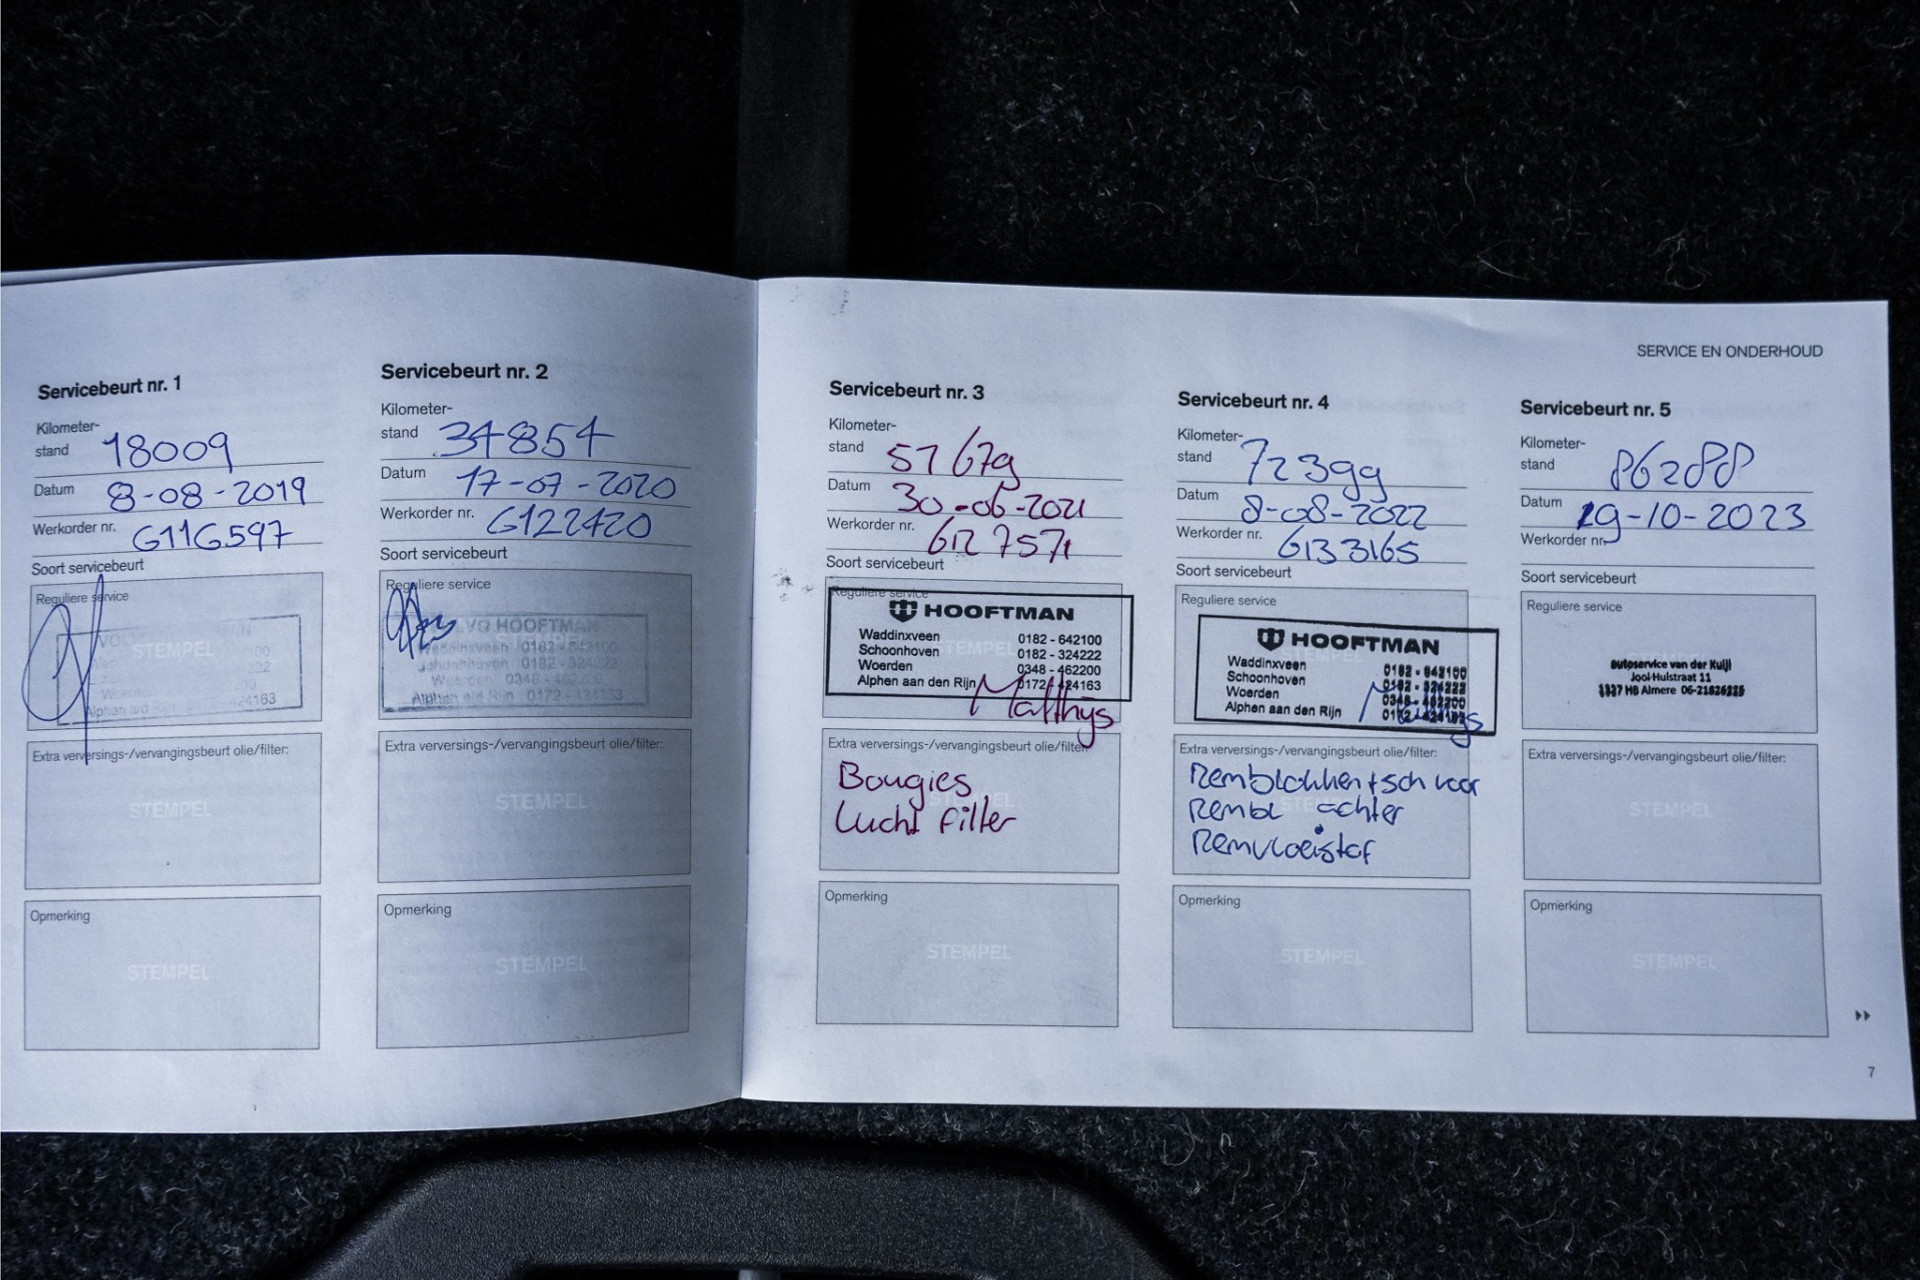 SERVICE EN ONDERHOUD
Servicebeurt nr. 1
Kilometer-
stand 18009
Datum 8-08-2019
Werkorder nr. 6116597
Soort servicebeurt
Reguliere service
STEMPEL
Alphen a/d Rijn 0172 - 424163
Extra verversings-/vervangingsbeurt olie/filter:
STEMPEL
Opmerking
STEMPEL
Servicebeurt nr. 2
Kilometer-
stand 34854
Datum 17-07-2020
Werkorder nr. 6122420
Soort servicebeurt
Reguliere service
VOLVO HOOFTMAN
Waddinxveen 0182 - 642100
Schoonhoven 0182 - 324222
Woerden 0348 - 462200
Alphen a/d Rijn 0172 - 424163
Extra verversings-/vervangingsbeurt olie/filter:
STEMPEL
Opmerking
STEMPEL
Servicebeurt nr. 3
Kilometer-
stand 51679
Datum 30-06-2021
Werkorder nr. 6127571
Soort servicebeurt
Reguliere service
HOOFTMAN
Waddinxveen 0182 - 642100
Schoonhoven 0182 - 324222
Woerden 0348 - 462200
Alphen aan den Rijn 0172 - 424163
Matthys
Extra verversings-/vervangingsbeurt olie/filter:
Bougies
Lucht filter
Opmerking
STEMPEL
Servicebeurt nr. 4
Kilometer-
stand 72399
Datum 8-08-2022
Werkorder nr. 6133165
Soort servicebeurt
Reguliere service
HOOFTMAN
Waddinxveen 0182 - 642100
Schoonhoven 0182 - 324222
Woerden 0348 - 462200
Alphen aan den Rijn 0172 - 424163
Extra verversings-/vervangingsbeurt olie/filter:
Remblokken + sch voor
Rembl achter
Remvloeistof
Opmerking
STEMPEL
Servicebeurt nr. 5
Kilometer-
stand 86288
Datum 19-10-2023
Werkorder nr.
Soort servicebeurt
Reguliere service
autoservice van der Kuijl
Jool-Hulstraat 11
1327 HB Almere
Extra verversings-/vervangingsbeurt olie/filter:
STEMPEL
Opmerking
STEMPEL
7